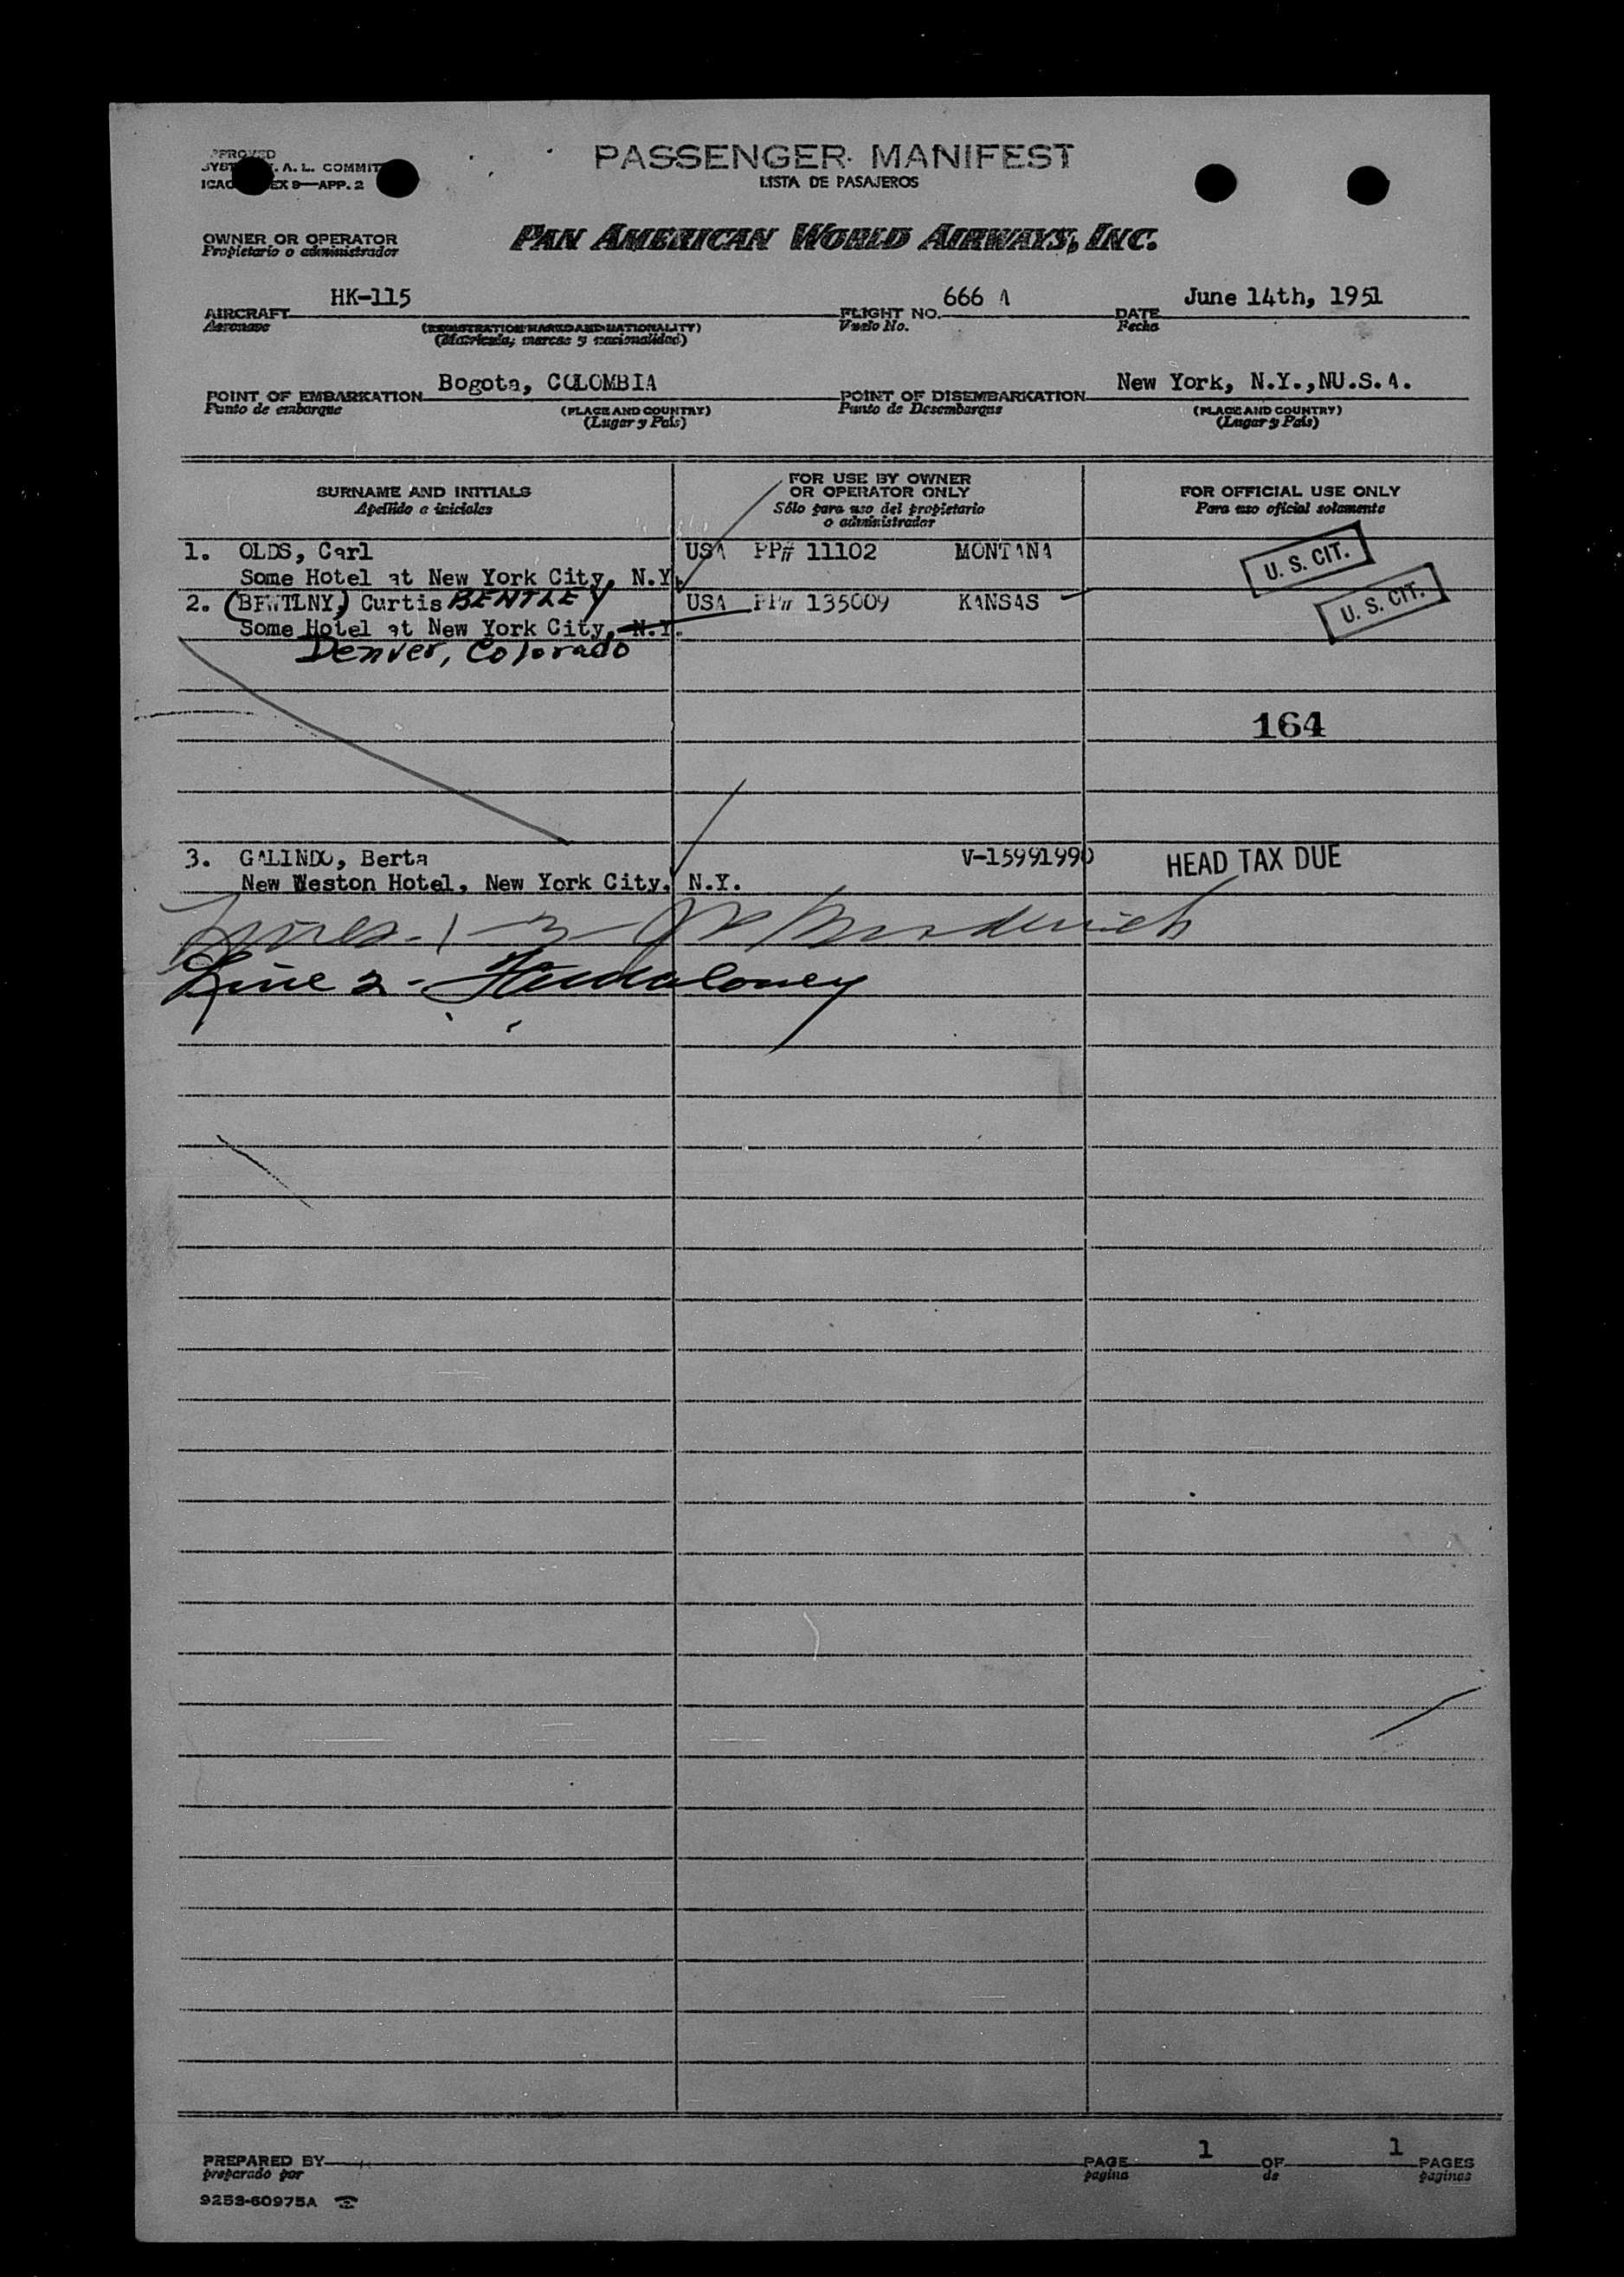 PASSENGER MANIFEST
LISTA DE PASAJEROS
A. L. COMMIT
ICAO EX 9—APP. 2
OWNER OR OPERATOR
Propietario o administrador
PAN AMERICAN WORLD AIRWAYS, INC.
AIRCRAFT HK-115 FLIGHT NO. 666 A DATE June 14th, 1951
Aeronave (REGISTRATION MARKS AND NATIONALITY) Vuelo No. Fecha
(Matricula; marcas y nacionalidad)
POINT OF EMBARKATION Bogota, COLOMBIA POINT OF DISEMBARKATION New York, N.Y.,NU.S.A.
Punto de embarque (PLACE AND COUNTRY) Punto de Desembarque (PLACE AND COUNTRY)
(Lugar y País) (Lugar y País)
SURNAME AND INITIALS
Apellido e iniciales
FOR USE BY OWNER
OR OPERATOR ONLY
Sólo para uso del propietario
o administrador
FOR OFFICIAL USE ONLY
Para uso oficial solamente
1. OLDS, Carl USA PP# 11102 MONTANA U. S. CIT.
Some Hotel at New York City, N.Y.
2. (BEWTLNY,) Curtis BENTLEY USA PP# 135009 KANSAS U. S. CIT.
Some Hotel at New York City, N.Y.
Denver, Colorado
164
3. GALINDO, Berta V-15991990 HEAD TAX DUE
New Weston Hotel, New York City, N.Y.
Lines - 1 - 3 -
Line 2 -
PREPARED BY PAGE 1 OF 1 PAGES
preparado por pagina de paginas
9253-60975A